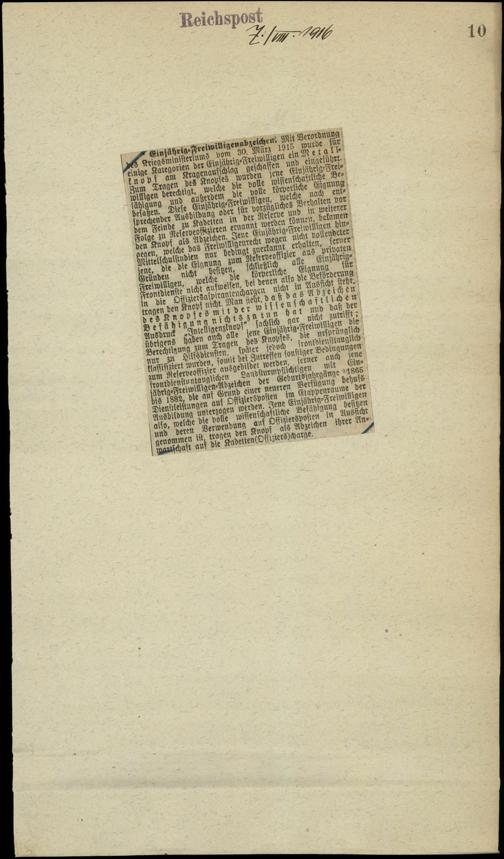 Reichspost
7./VIII. 1916
10
Einjährig-Freiwilligenabzeichen. Mit Verordnung
des Kriegsministeriums vom 30. März 1915 wurde für
einige Kategorien der Einjährig-Freiwilligen ein Metall-
knopf am Kragenaufschlag geschaffen und eingeführt.
Zum Tragen des Knopfes wurden jene Einjährig-Frei-
willigen berechtigt, welche die volle wissenschaftliche Be-
fähigung und außerdem die volle körperliche Eignung
besaßen. Diese Einjährig-Freiwilligen, welche nach ent-
sprechender Ausbildung oder für vorzügliches Verhalten vor
dem Feinde zu Kadetten in der Reserve und in weiterer
Folge zu Reserveoffizieren ernannt werden können, bekamen
den Knopf als Abzeichen. Jene Einjährig-Freiwilligen hin-
gegen, welche das Freiwilligenrecht wegen nicht vollendeter
Mittelschulstudien nur bedingt zuerkannt erhalten, ferner
jene, die die Eignung zum Reserveoffizier aus privaten
Gründen nicht besitzen, schließlich alle Einjährig-
Freiwilligen, welche die körperliche Eignung für
Frontdienste nicht aufweisen, bei denen also die Beförderung
in die Offiziersaspirantenchargen nicht in Aussicht steht,
tragen den Knopf nicht. Man sieht, daß das Abzeichen
des Knopfes mit der wissenschaftlichen
Befähigung nichts zu tun hat und daß der
Ausdruck „Intelligenzknopf" sachlich gar nicht zutrifft;
übrigens haben auch alle jene Einjährig-Freiwilligen die
Berechtigung zum Tragen des Knopfes, die ursprünglich
nur zu Hilfsdiensten, später jedoch frontdiensttauglich
klassifiziert wurden, somit bei Zutreffen sonstiger Bedingungen
zum Reserveoffizier ausgebildet werden, ferner auch jene
frontdienstuntauglichen Landsturmpflichtigen mit Ein-
jährig-Freiwilligen-Abzeichen der Geburtsjahrgänge 1865
bis 1882, die auf Grund einer neueren Verfügung behufs
Dienstleistungen auf Offiziersposten im Etappenraume der
Ausbildung unterzogen werden. Jene Einjährig-Freiwilligen
also, welche die volle wissenschaftliche Befähigung besitzen
und deren Verwendung auf Offiziersposten in Aussicht
genommen ist, tragen den Knopf als Abzeichen ihrer An-
wartschaft auf die Kadetten(Offiziers)charge.